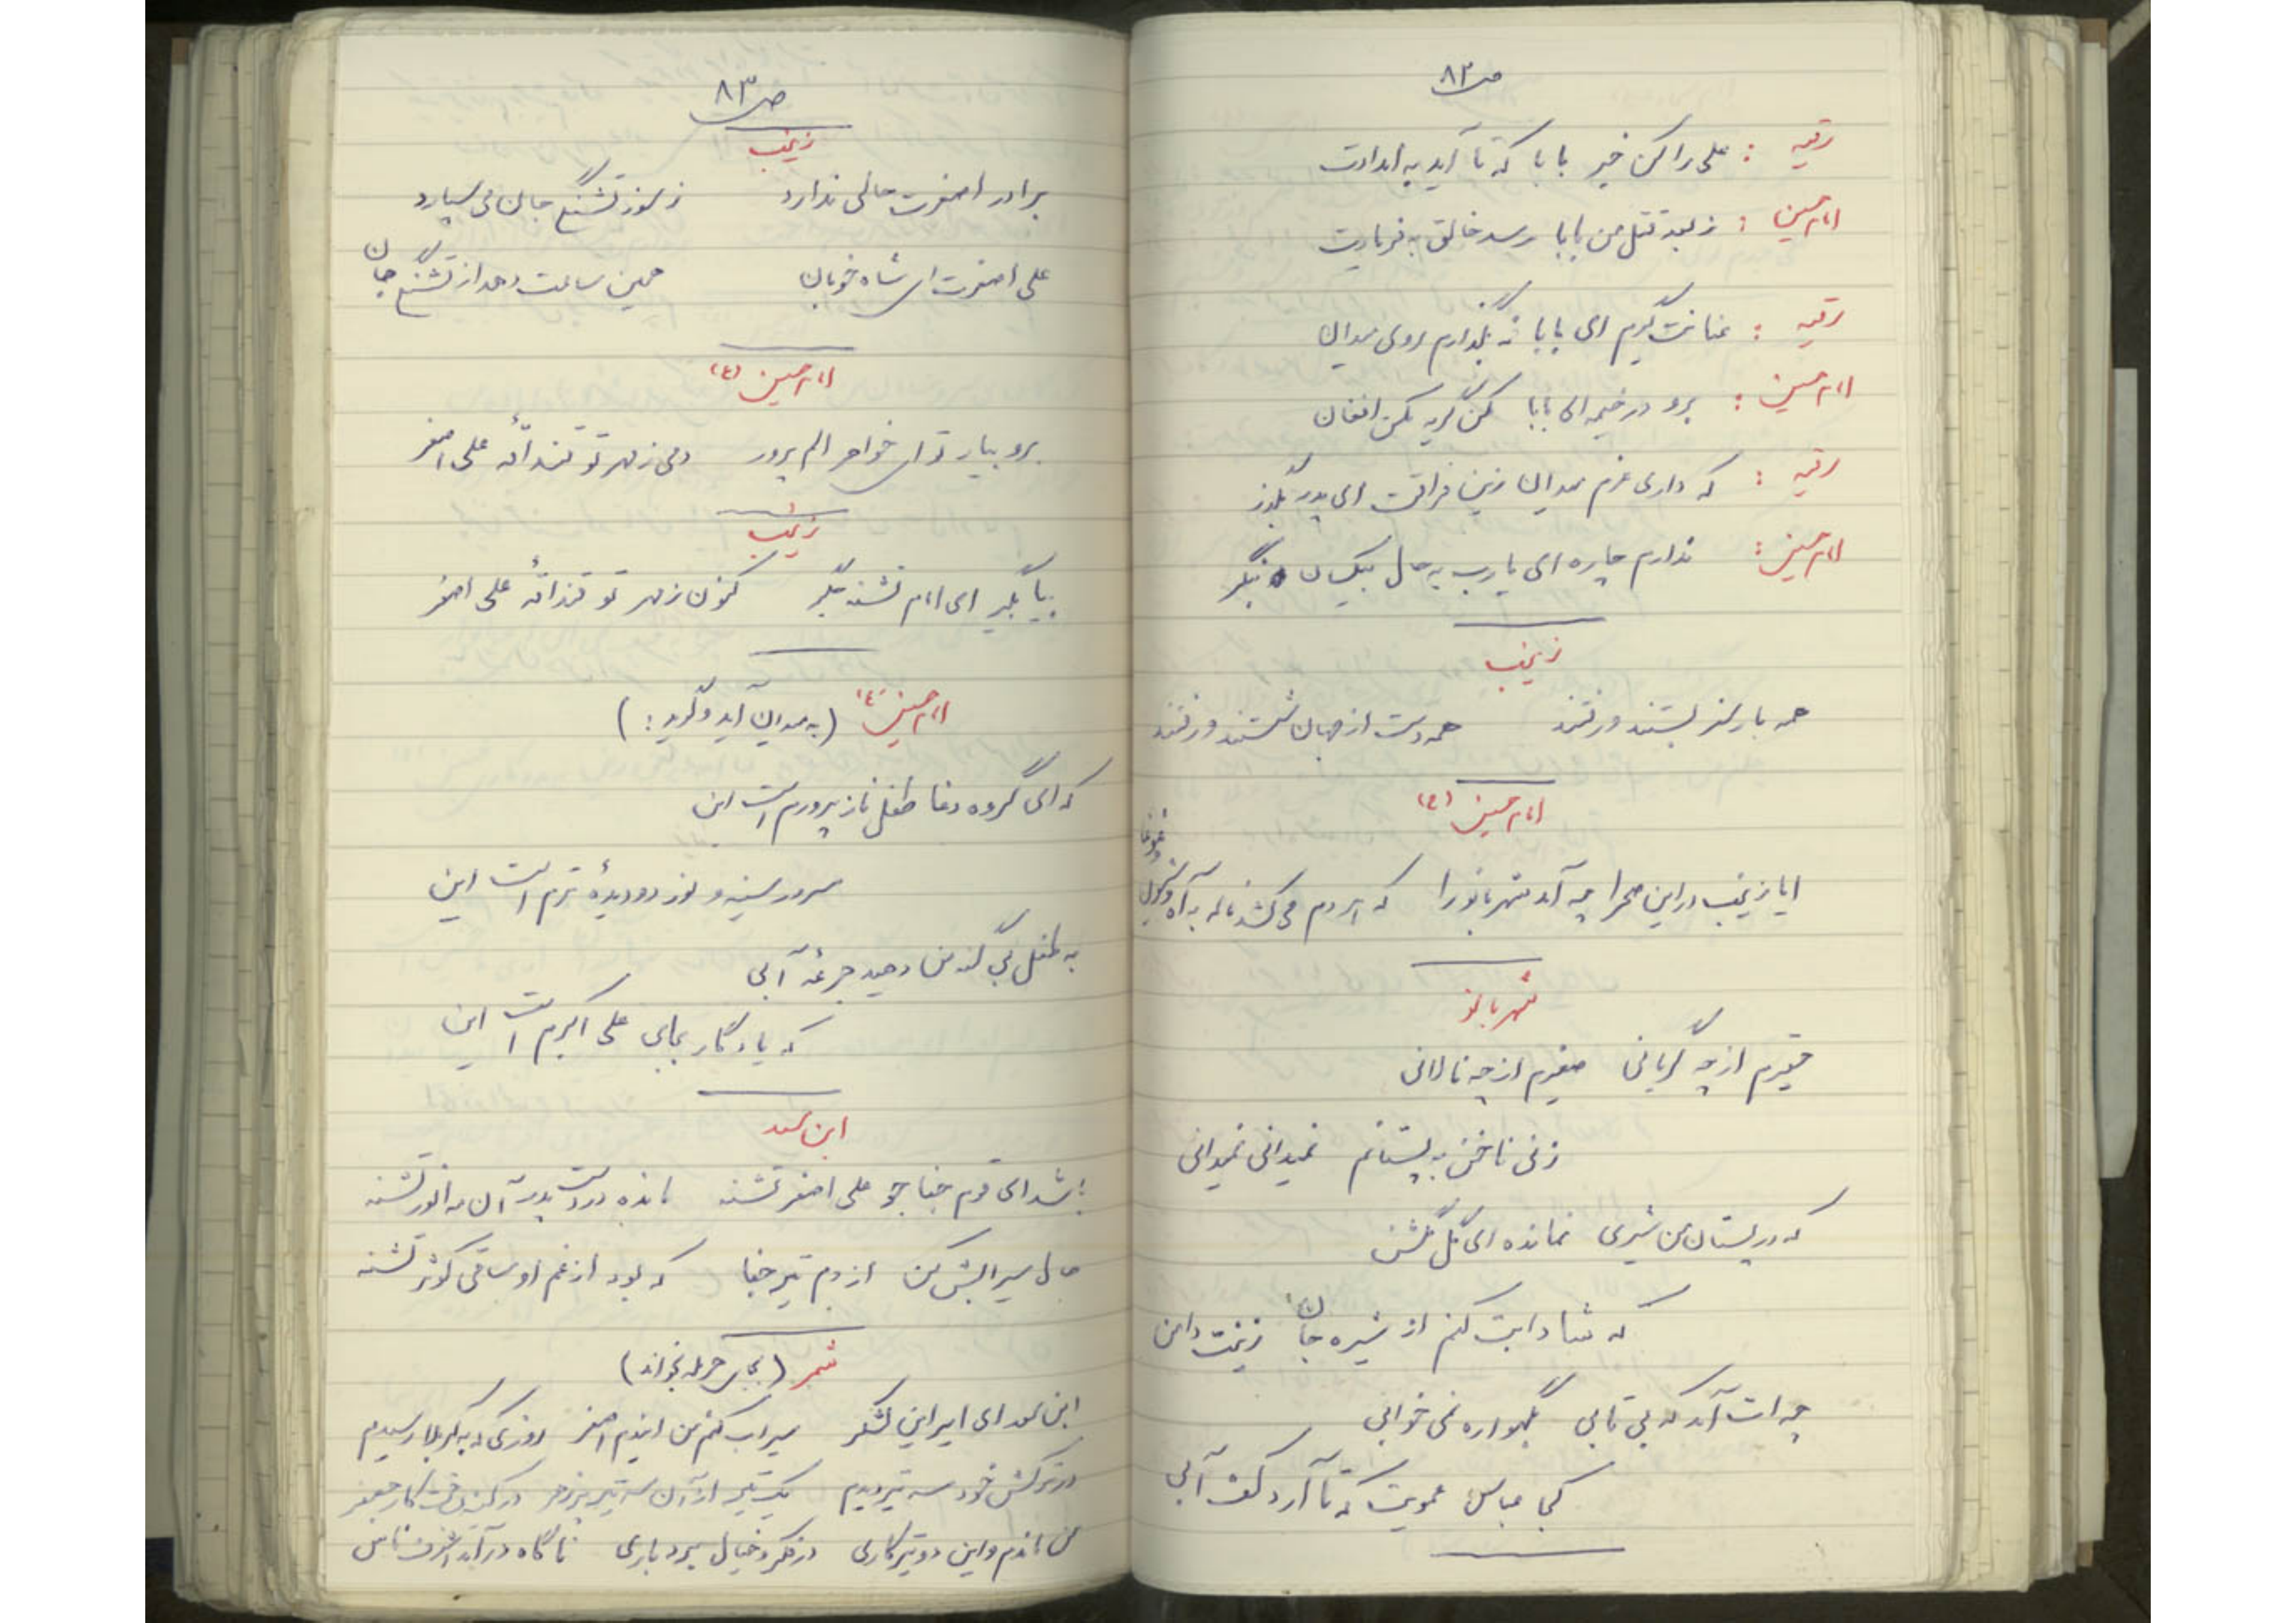 ص ۸۲
رقیه : علی را کن خبر بابا که تا آید به امدادت
امام حسین : ز بعد قتل من بابا رسد خالق به فریادت
رقیه : عنانت گیرم ای بابا نه بگذارم روی میدان
امام حسین : برو در خیمه ای بابا مکن گریه مکن افغان
رقیه : که داری عزم میدان زین فراقت ای پدر بگذر
امام حسین : ندارم چاره ای یا رب به حال بیکسان بنگر
زینب
همه بار سفر بستند و رفتند همه دست از جهان شستند و رفتند
امام حسین (ع)
ایا زینب در این صحرا چه آمد شهربانو را که هر دم می کشد ناله به آه و شیون و غوغا
شهربانو
حقیرم از چه گریانی صغیرم از چه نالانی
زنی ناخن به پستانم نمیدانی نمیدانی
که در پستان من شیری نمانده ای گل گلشن
که شادابت کنم از شیره جان زینت دامن
چه ات آمد که بی تابی بگهواره نمی خوابی
کجا عباس عمویت که تا آرد کف آبی
ص ۸۳
زینب
برادر اصغرت حالی ندارد ز سوز تشنگی جان می سپارد
علی اصغرت ای شاه خوبان همین ساعت دهد از تشنگی جان
امام حسین (ع)
برو بیار تو ای خواهر الم پرور دمی ز مهر تو قنداقه علی اصغر
زینب
بیا بگیر ای امام تشنه جگر کنون ز مهر تو قنداقه علی اصغر
امام حسین (ع) (به میدان آید و گوید : )
که ای گروه دغا طفل ناز پرورم است این
سرور سینه و نور دو دیدهٔ ترم است این
به طفل بی گنه من دهید جرعهٔ آبی
که یادگار بجای علی اکبرم است این
ابن سعد
باشد ای قوم جفا جو علی اصغر تشنه مانده در دست پدر آن مه انور تشنه
حال سیرابش کن از دم تیر جفا که بود از غم او ساقی کوثر تشنه
شمر (بجای حرمله بخواند)
ابن سعد ای امیر این لشگر سیراب کنم من ایندم اصغر روزی که به کربلا رسیدم
در ترکش خود سه تیر دیدم یک تیر از آن سه تیر
من ماندم و این دو تیر کاری در فکر و خیال بردباری ناگاه درآمد اشرف ناس